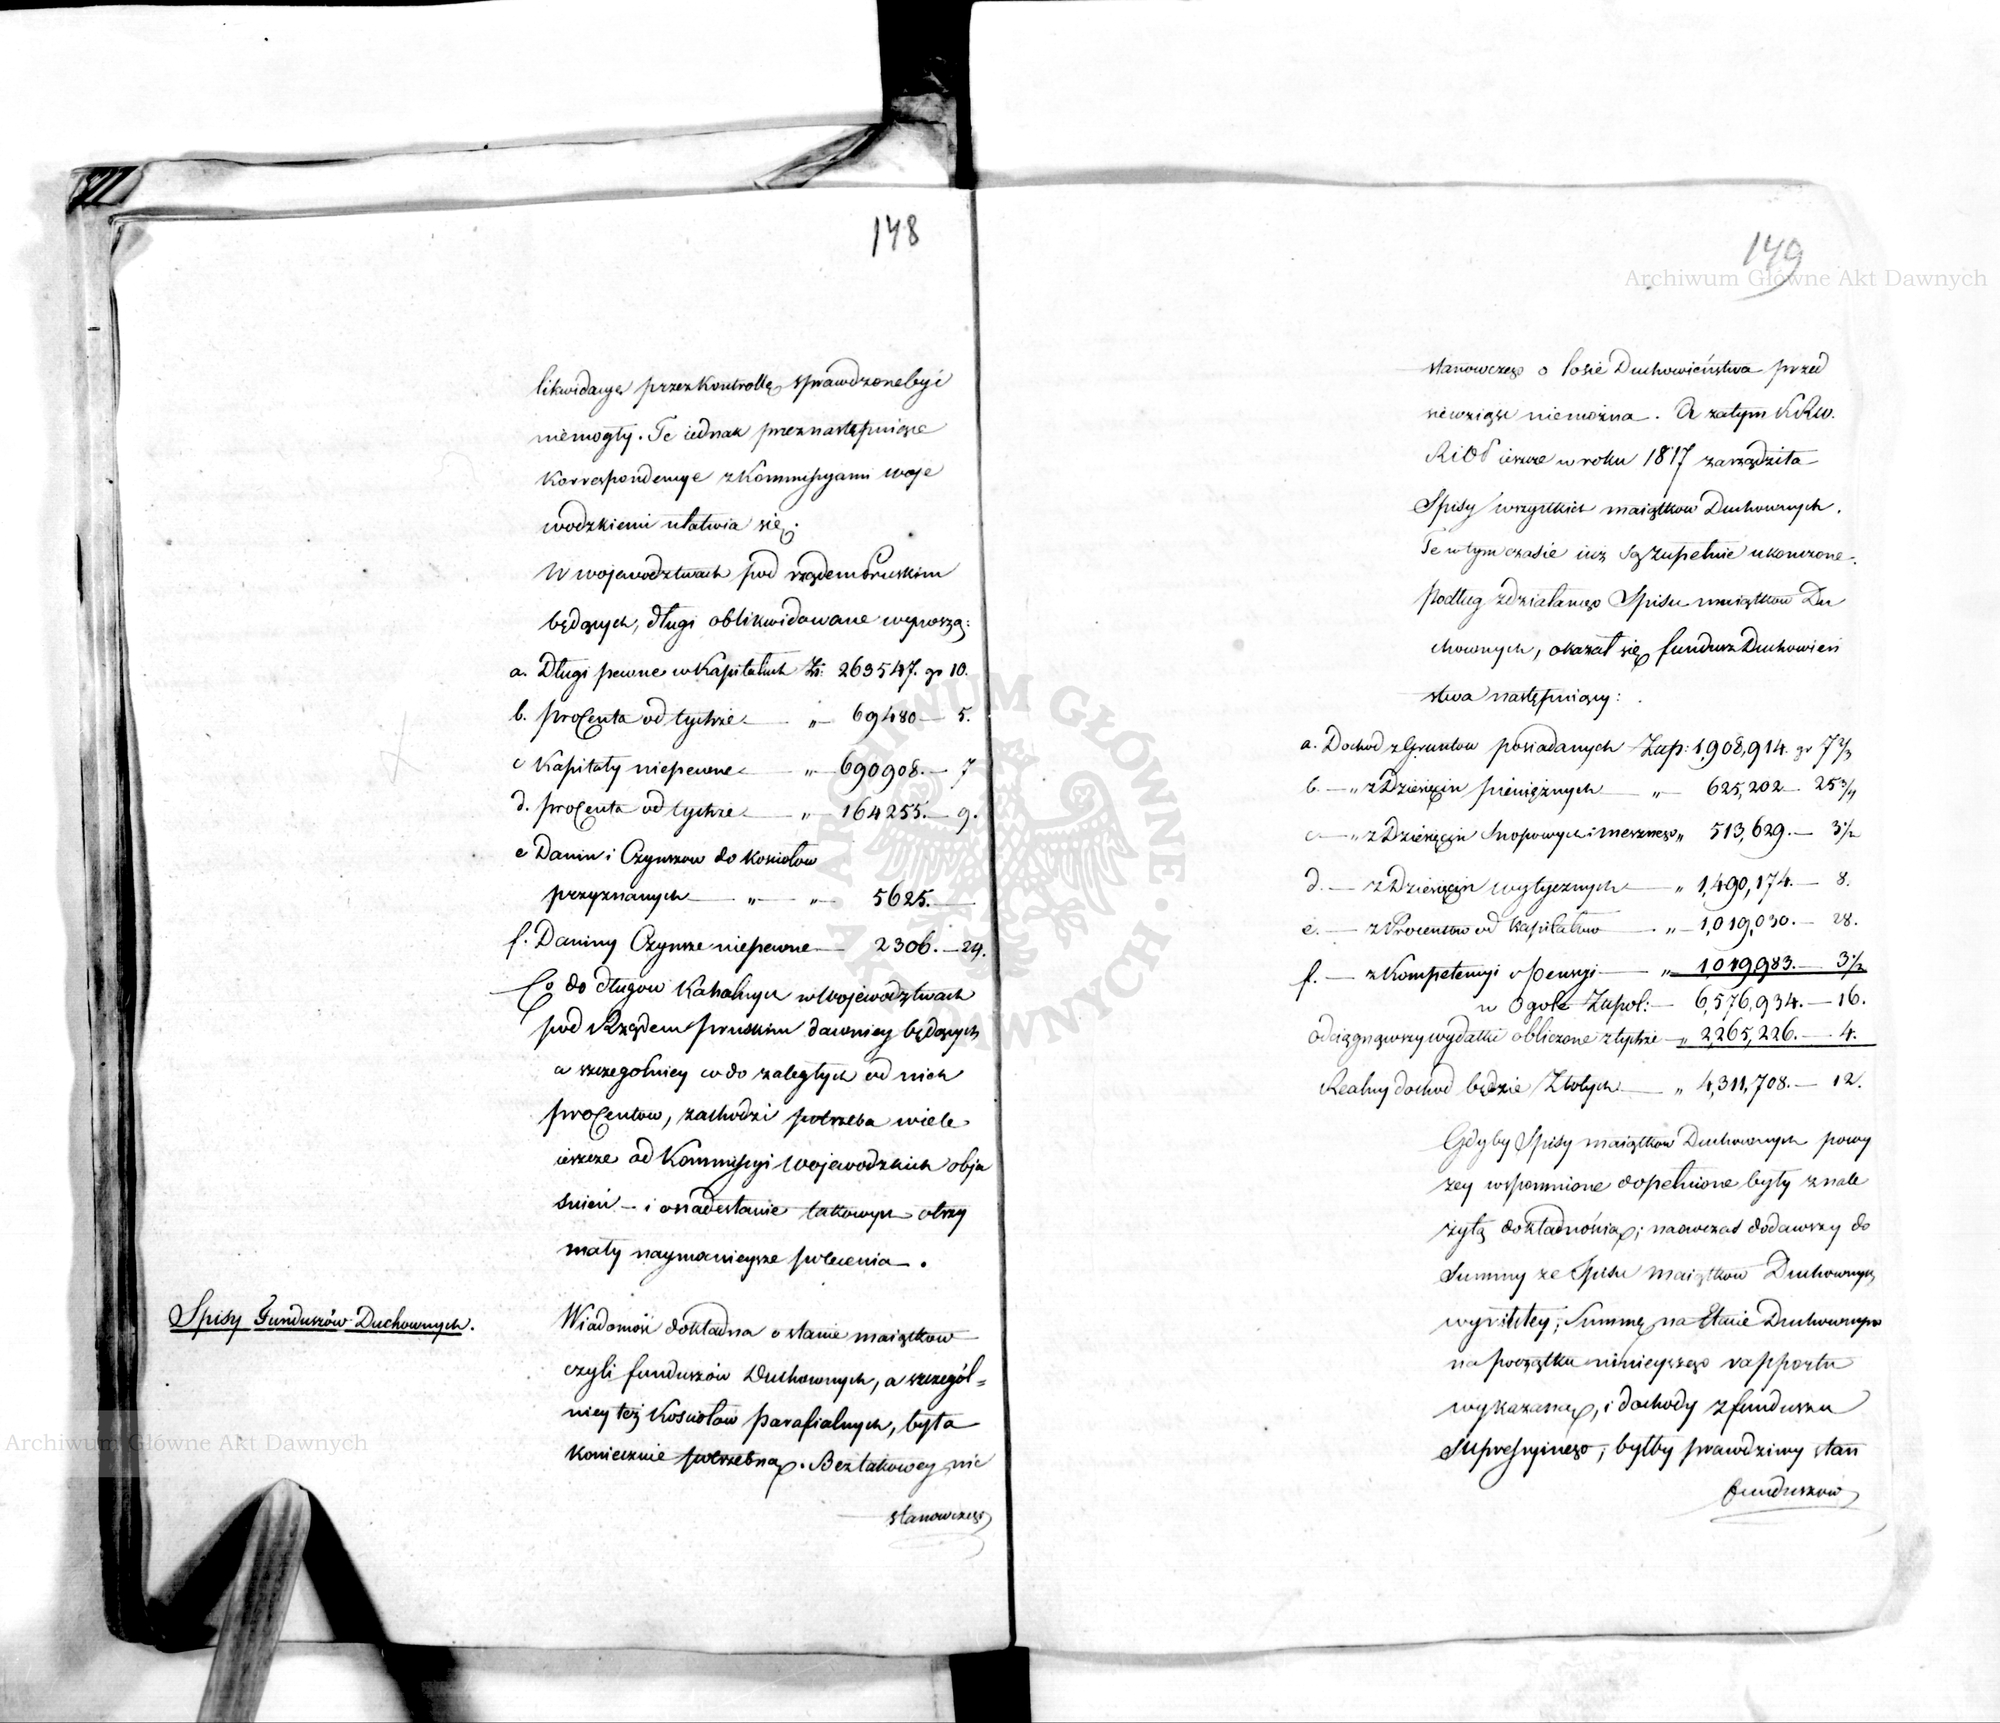 148
likwidacye przez Kontrollę sprawdzone być
niemogły. Te iednak przez następniące
Korrespondencye z Kommissyami woje
wodzkiemi ułatwia się.
W wojewodztwach pod rządem Pruskim
będących, długi oblikwidowane wynoszą:
a. Długi pewne w Kapitałach Zł: 263547. gr 10.
b. procenta od tychże — „ — 69480 — 5.
c Kapitały niepewne — „ — 690908. — 7
d. procenta od tychże — „ — 164255. — 9.
e Danin i Czynszow do kosciołow
przyznanych — „ — „ — 5625. —
f. Daniny Czynsze niepewne — 2306. — 24.
Co do długow Kahalnych w Wojewodztwach
pod Rządem pruskim dawniey będących
a szczegolniey co do zaległych od nich
procentow, zachodzi potrzeba wiele
ieszcze od Kommissyi Wojewodzkich obja
snień — i o nadesłanie takowych otrzy
mały naymocnieysze polecenia.
Spisy Funduszów Duchownych.
Wiadomość dokładna o stanie maiątkow
czyli funduszów Duchownych, a szczegól=
niey też Kosciołow parafialnych, była
koniecznie potrzebną. Bez takowey nic
stanowczego
149
stanowczego o losie Duchowieństwa przed
siewziąść niemożna. Za zatym KRW.
RiOP ieszcze w roku 1817 zarządziła
Spisy wszystkich maiątkow Duchownych.
Te w tym czasie iuż są zupełnie ukonczone.
podług zdziałanego Spisu maiątkow Du
chownych, okazał się fundusz Duchowień
stwa następniący:
a. Dochod z Gruntow posiadanych Złp: 1,908,914. gr 7 2/3
b. — „ z Dziesięcin pieniężnych — „ — 625,202 — 25 3/4
c — „ z Dziesięcin Snopowych i mesznego „ 513,629. — 3 1/2
d. — z Dziesięcin wytycznych — „ 1,490,174. — 8.
e. — z Procentow od kapitałow — „ — 1,019,030. — 28.
f. — z Kompetencyi i Pensyi — „ 1,019,983. — 3 1/2
w Ogole Złpol: — 6,576,934. — 16.
odciągnąwszy wydatki obliczone z tychże — „ 2,265,226. — 4.
Realny dochod będzie Złotych — „ 4,311,708. — 12.
Gdyby Spisy maiątkow Duchownych powy
zey wspomnione dopełnione były z nale
żytą dokładnością; naowczas dodawszy do
Summy ze Spisu maiątkow Duchownych
wynikłey, Summę na Etacie Duchownym
na początku ninieyszego rapportu
wykazaną, i dochody z funduszu
Supressyinego, byłby prawdziwy stan
funduszow
Archiwum Główne Akt Dawnych
Archiwum Główne Akt Dawnych
ARCHIWUM GŁÓWNE AKT DAWNYCH